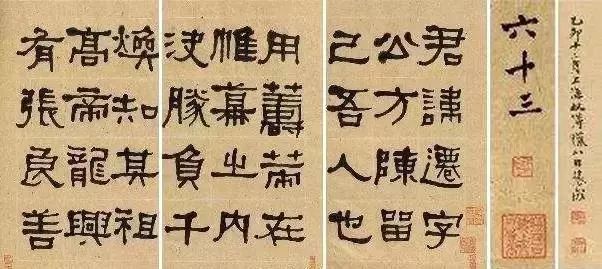 乙卯十二月上海
六十三
君諱遷字
公方陳留
己吾人也
用籌策在
帷幕之内
決勝負千
煥知其祖
高帝龍興
有張良善